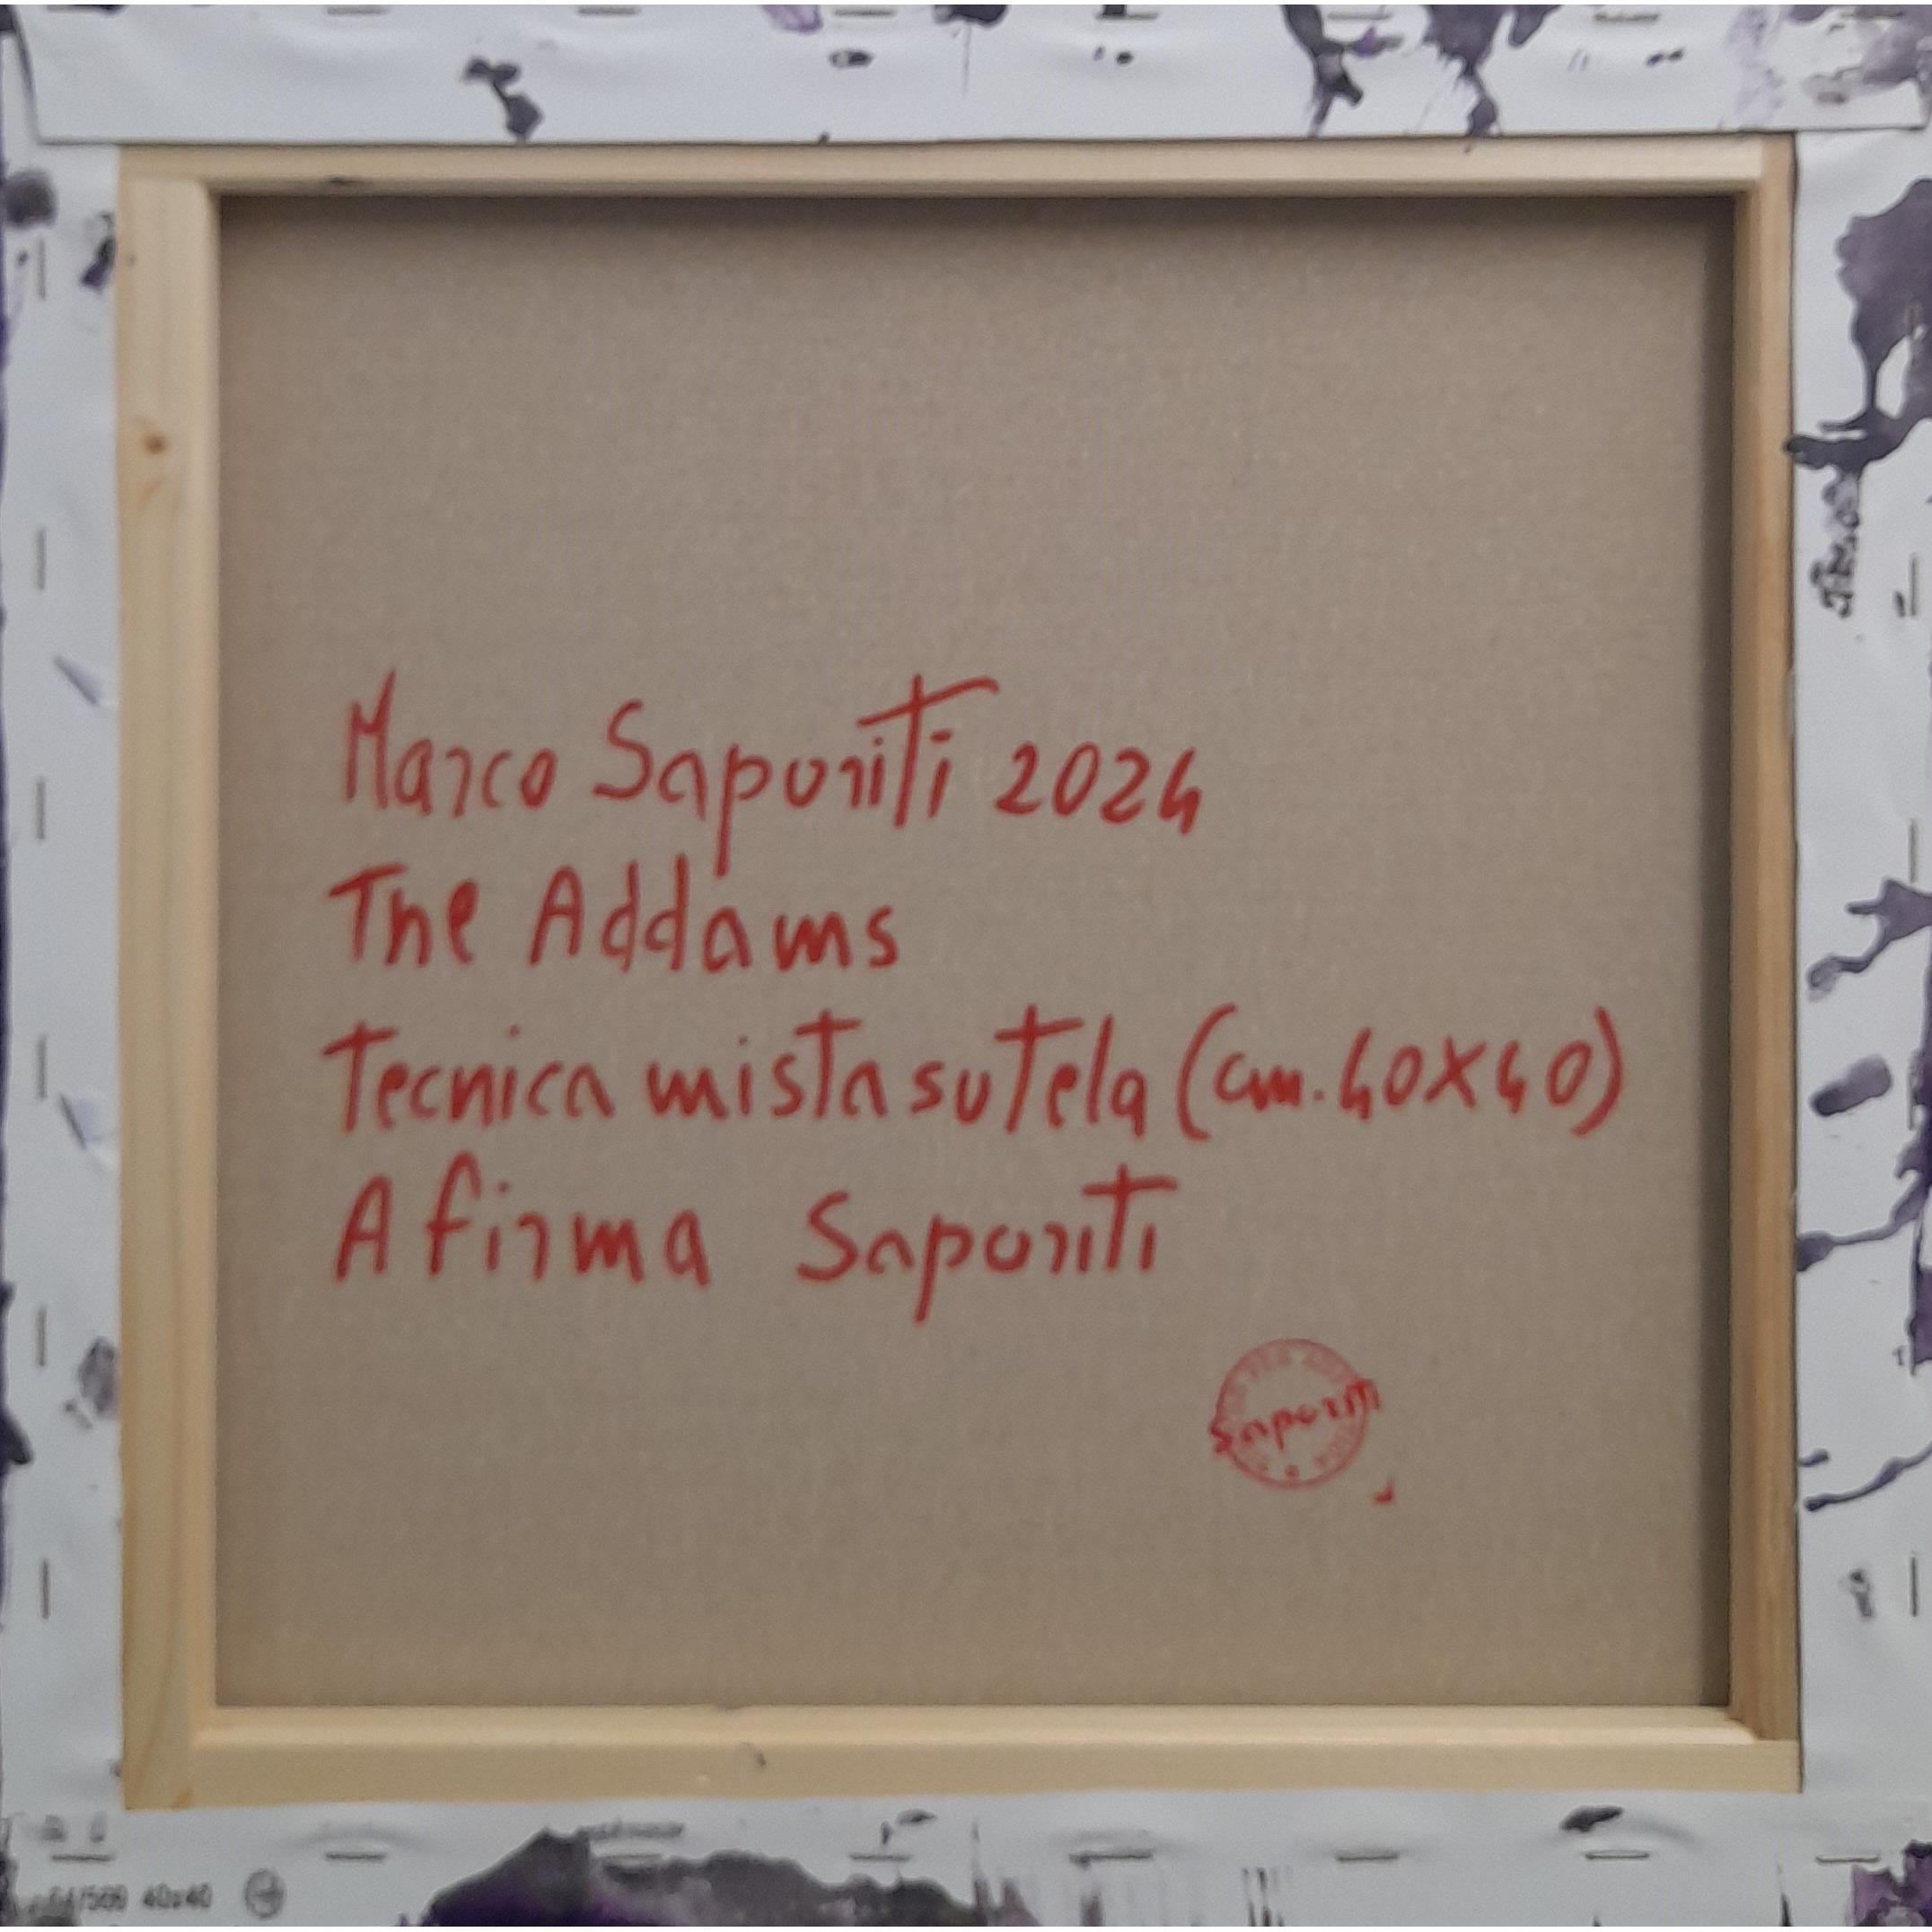 Marco Saporiti 2024
The Addams
Tecnica mista su tela (cm. 40X40)
A firma Saporiti
Saporiti
40x40